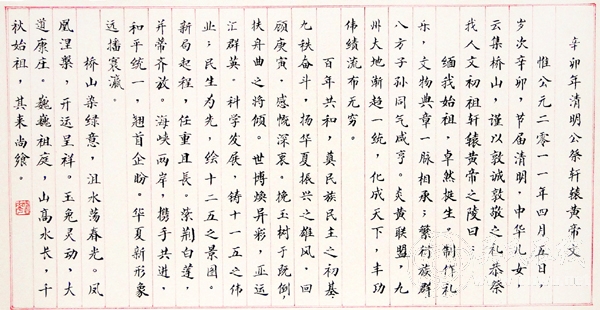 辛卯年清明公祭轩辕黄帝文
惟公元二零一一年四月五日，
岁次辛卯，节届清明，中华儿女，
云集桥山，谨以敦诚敦敬之礼恭祭
我人文初祖轩辕黄帝之陵曰：
缅我始祖，卓然挺生。制作礼
乐，文物典章一脉相承；繁衍族群，
八方子孙同气咸亨。炎黄联盟，九
州大地渐趋一统，化成天下，丰功
伟绩流布无穷。
百年共和，奠民族民主之初基，
九秩奋斗，扬华夏振兴之雄风。回
顾庚寅，感慨深衷。挽玉树于既倒，
扶舟曲之将倾。世博焕异彩，亚运
汇群英。科学发展，铸十一五之伟
业；民生为先，绘十二五之景图。
新局起程，任重且长。紫荆白莲，
并蒂齐放。海峡两岸，携手共进，
和平统一，翘首企盼。华夏新形象
远播寰瀛。
桥山染绿意，沮水荡春光。凤
凰涅槃，开运呈祥。玉兔灵动，大
道康庄。巍巍祖庭，山高水长，千
秋始祖，其来尚飨。